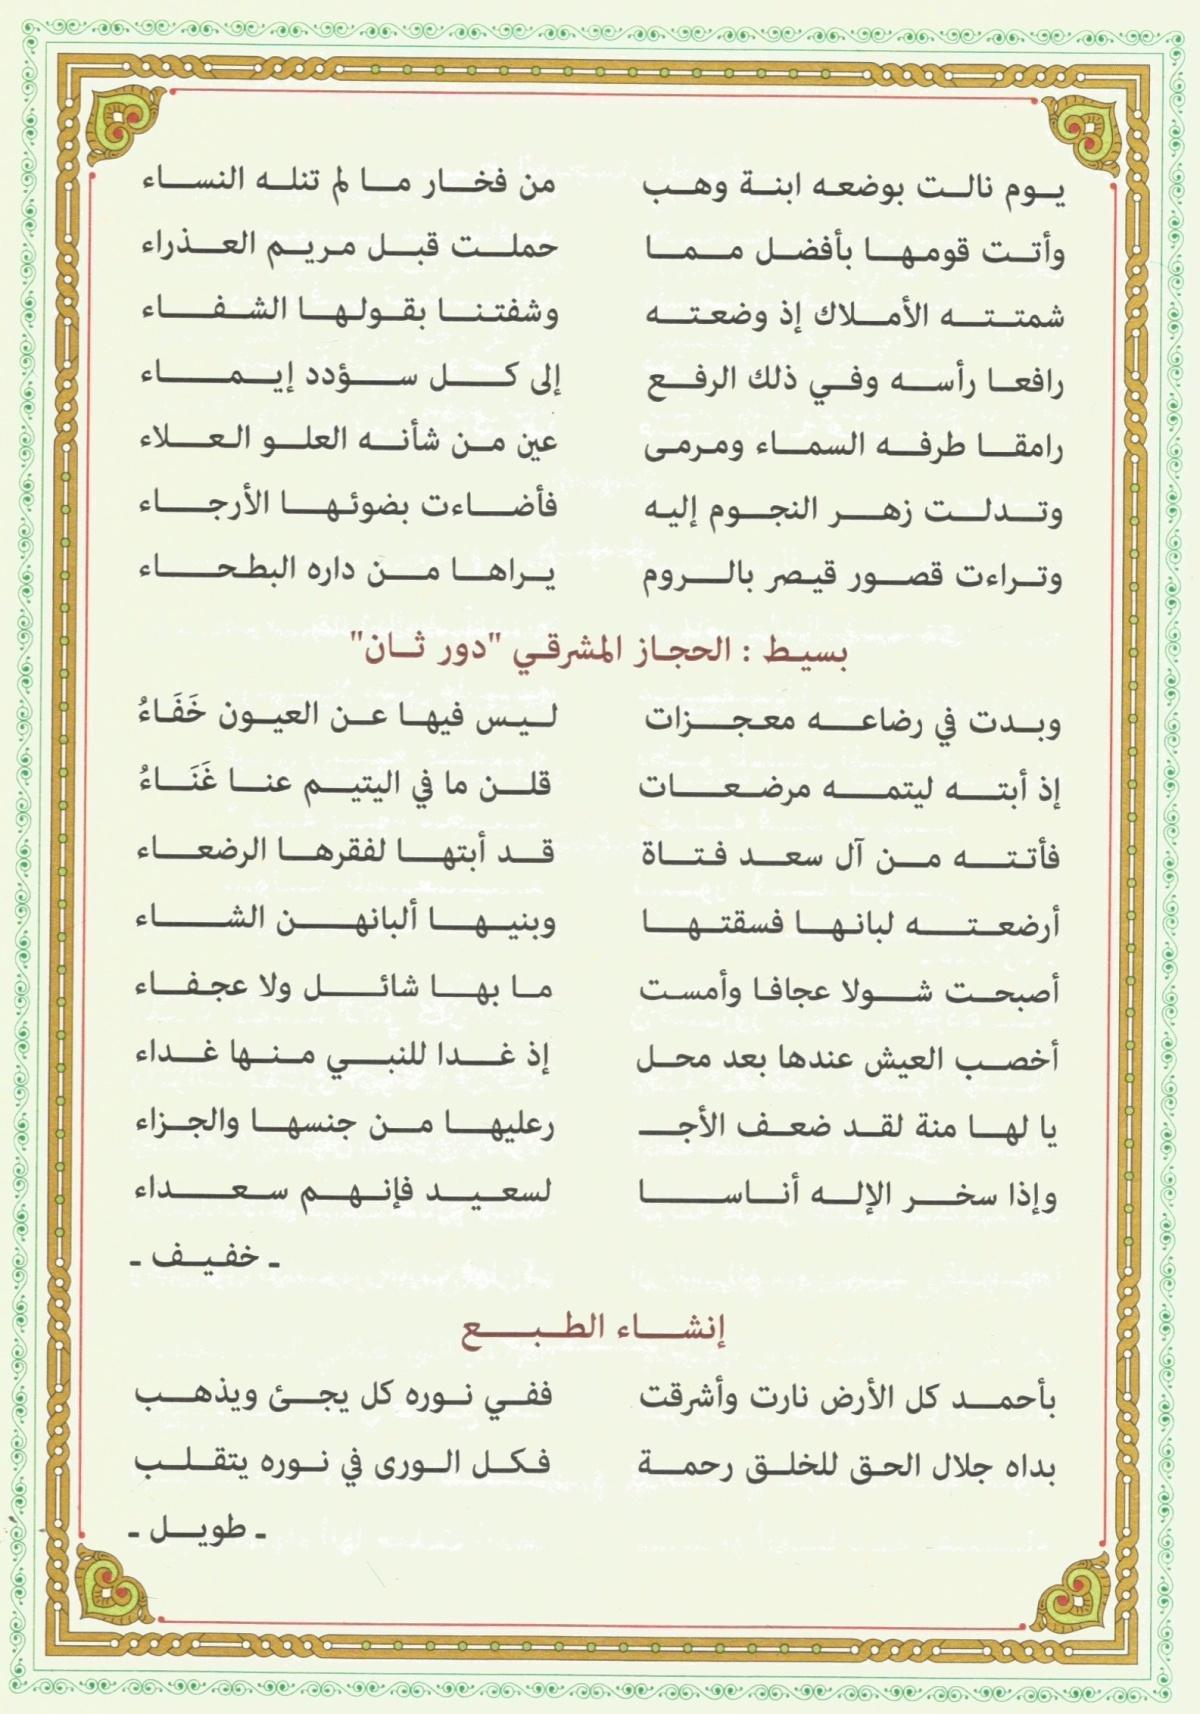 يوم نالت بوضعه ابنة وهب من فخار ما لم تنله النساء
وأتت قومها بأفضل مما حملت قبل مريم العذراء
شمتته الأملاك إذ وضعته وشفتنا بقولها الشفاء
رافعا رأسه وفي ذلك الرفع إلى كل سؤدد إيماء
رامقا طرفه السماء ومرمى عين من شأنه العلو العلاء
وتدلت زهر النجوم إليه فأضاءت بضوئها الأرجاء
وتراءت قصور قيصر بالروم يراها من داره البطحاء
بسيط : الحجاز المشرقي "دور ثان"
وبدت في رضاعه معجزات ليس فيها عن العيون خَفَاءُ
إذ أبته ليتمه مرضعات قلن ما في اليتيم عنا غَنَاءُ
فأتته من آل سعد فتاة قد أبتها لفقرها الرضعاء
أرضعته لبانها فسقتها وبنيها ألبانهن الشاء
أصبحت شولا عجافا وأمست ما بها شائل ولا عجفاء
أخصب العيش عندها بعد محل إذ غدا للنبي منها غداء
يا لها منة لقد ضعف الأجـ رعليها من جنسها والجزاء
وإذا سخر الإله أناسا لسعيد فإنهم سعداء
- خفيف -
إنشاء الطبع
بأحمد كل الأرض نارت وأشرقت ففي نوره كل يجئ ويذهب
بداه جلال الحق للخلق رحمة فكل الورى في نوره يتقلب
- طويل -